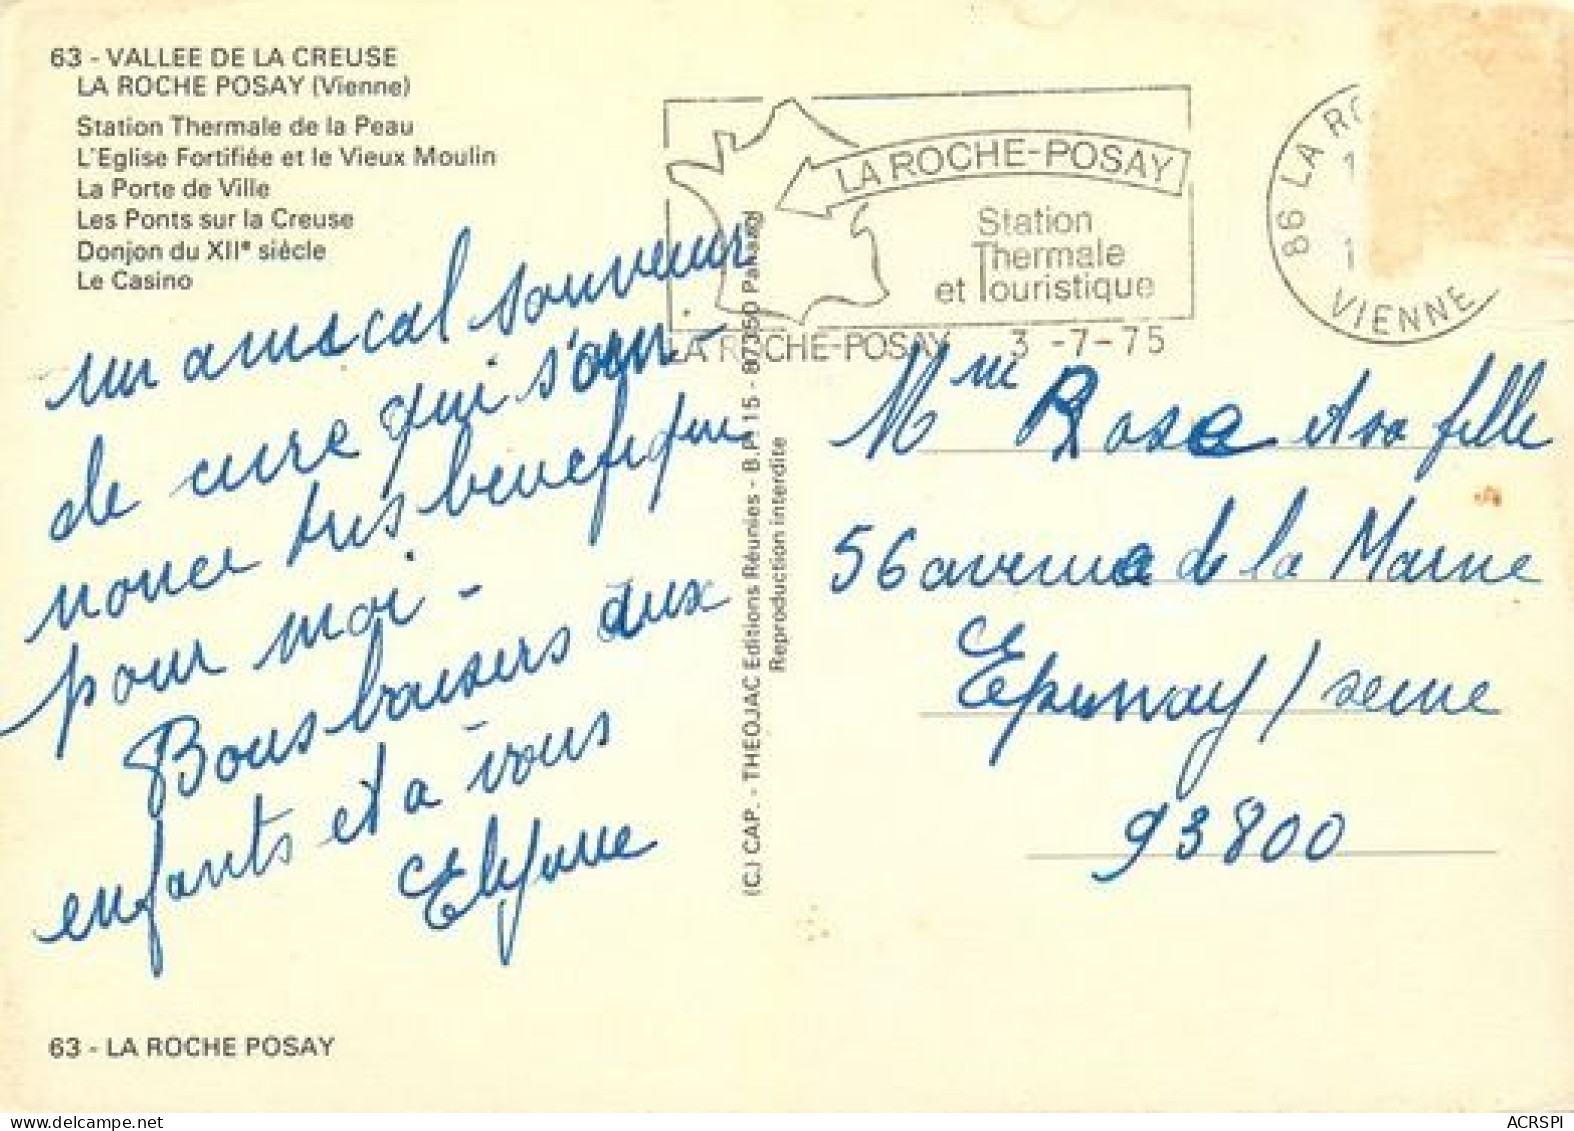 63 - VALLEE DE LA CREUSE
LA ROCHE POSAY (Vienne)
Station Thermale de la Peau
L'Eglise Fortifiée et le Vieux Moulin
La Porte de Ville
Les Ponts sur la Creuse
Donjon du XIIe siècle
Le Casino
un amical souvenir
de cure qui s'an-
nonce tres benefique
pour moi -
Bons baisers aux
enfants et a vous
63 - LA ROCHE POSAY
(C.) CAP. - THEOJAC Editions Réunies - B.P. 15 - 87350 Panazol
Reproduction interdite
LA ROCHE-POSAY
Station
Thermale
et Touristique
LA ROCHE-POSAY 3 -7-75
86 LA RO
VIENNE
Mme Rose et sa fille
56 avenue de la Marne
Epinay / seine
93800
ACRSPI